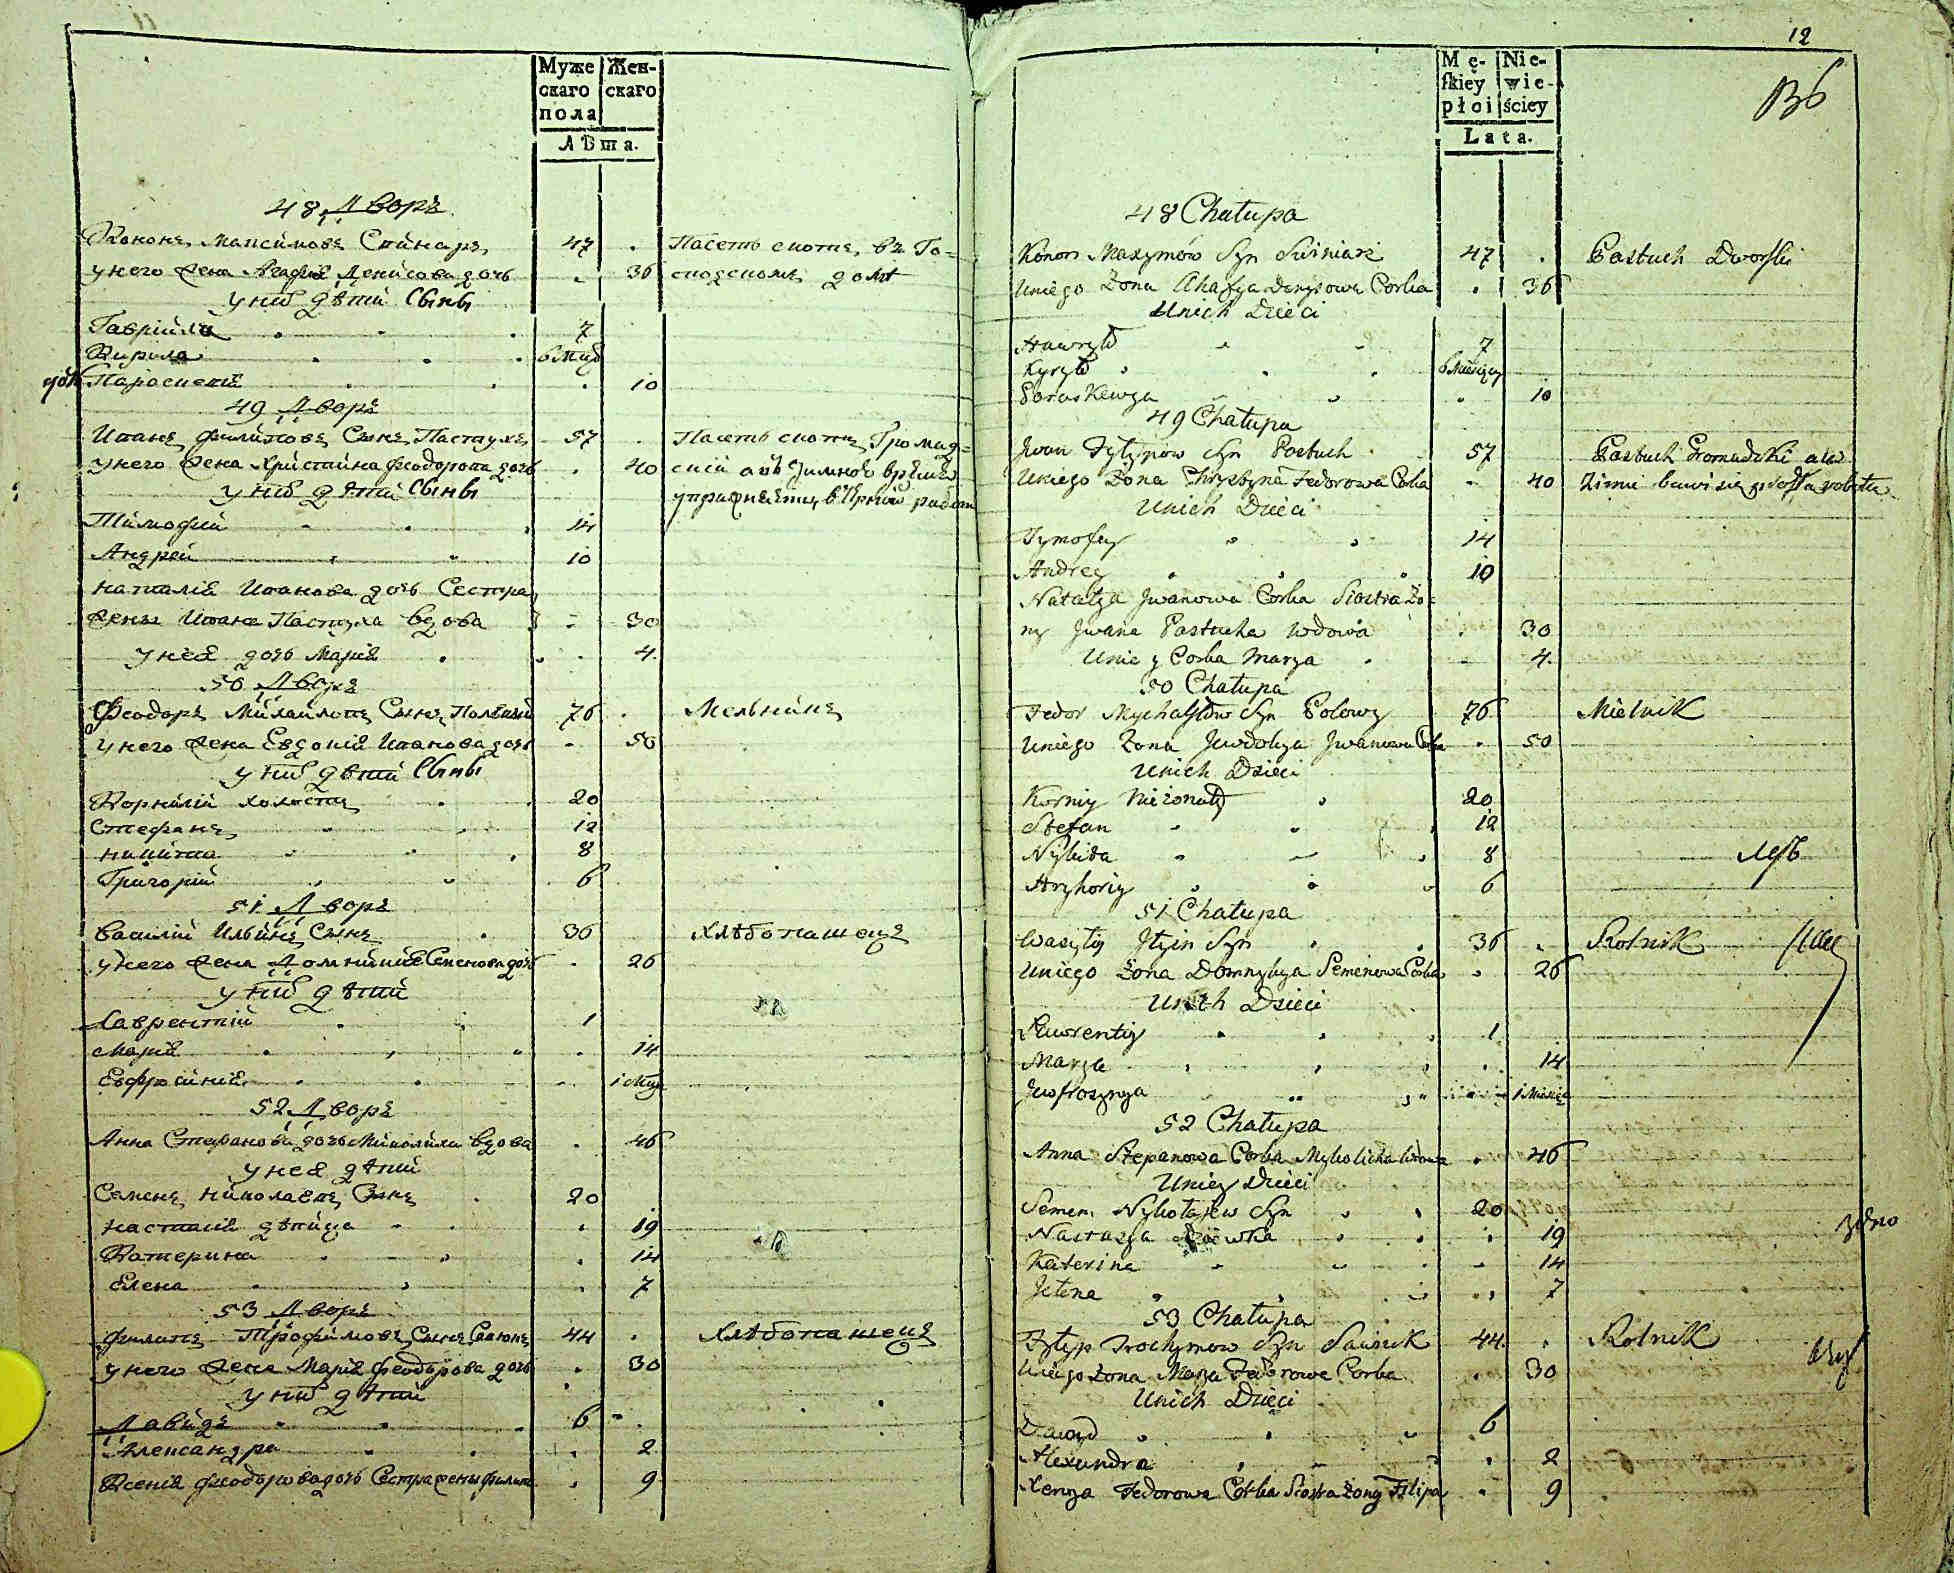 Муже Жен-
скаго скаго
пола
Лѣта.
48 Дворъ
Кононъ Максимовъ 47 Пасетъ скотъ въ Го=
у него жена Агафия Денисова дочь 36 сподскомъ домѣ
у них дѣти Сыны
Гаврiила 7
Кирила 6 Мцъ
дочь Параскева 10
49 Дворъ
Иванъ Филиповъ Сынъ Пастухъ 57 Пасетъ скотъ Громад=
у него жена Христина Феодорова дочь 40 скiй а въ зимное время
у них дѣти Сыны упражняетца в
Тимофей 14
Андрей 10
Наталiя Иванова дочь Сестра
жены Ивана Пастуха вдова 30
у нея дочь Марiя 4
50 Дворъ
Феодоръ Михайловъ Сынъ Полевый 76 Мельникъ
у него жена Евдокiя Иванова дочь 50
у них дѣти Сыны
Корнилiй холостъ 20
Стефанъ 12
Никита 8
Григорiй 6
51 Дворъ
Василiй Ильинъ Сынъ 36 Хлѣбопашецъ
у него жена Домникiя Семенова дочь 26
у них дѣти
Лаврентiй 1
Марiя 14
Евфросинiя 1 Мцъ
52 Дворъ
Анна Стефанова дочь Миколиха вдова 46
у нея дѣти
Семенъ Николаевъ Сынъ 20
Настасiя дѣвица 19
Катерина 14
Елена 7
53 Дворъ
Филипъ Трофимовъ Сынъ Савюкъ 44 Хлѣбопашецъ
у него жена Марiя Феодорова дочь 30
у них дѣти
Давидъ 6
Александра 2
Ксенiя Феодорова дочь Сестра жены Филипа 9
12
Mę- Nie-
skiey wie-
płoi ściey
Lata.
48 Chałupa
Konon Maxymów Syn 47 Pastuch Dworski
Uniego Żona Ahafya Denysowa Corka 36
Unich Dzieci
Hawryło 7
Kyryło 6 Miesięcy
Paraskewya 10
49 Chałupa
Jwan Fylypow Syn Pastuch 57 Pastuch Gromadzki a w
Uniego Żona Chrystyna Fedorowa Corka 40 Zimie bawi się robotą
Unich Dzieci
Tymofey 14
Andrey 10
Natalya Jwanowa Corka Siostra Żo=
ny Jwana Pastucha wdowa 30
Uniey Corka Marya 4
50 Chałupa
Fedor Mychayłow Syn Polowy 76 Mielnik
Uniego Żona Jewdokya Jwanowa Corka 50
Unich Dzieci
Korniy Nieżonaty 20
Stefan 12
Nykita 8
Hryhoriy 6
51 Chałupa
Wasyliy Jlyin Syn 36 Rolnik
Uniego Żona Domnykya Semenowa Corka 26
Unich Dzieci
Lawrentiy 1
Marya 14
Jewfrosynya 1 Miesiąc
52 Chałupa
Anna Stepanowa Corka Mykolicha wdowa 46
Uniey Dzieci
Semen Nykołajew Syn 20
Nastasya Dziewka 19
Katerina 14
Jelena 7
53 Chałupa
Fylyp Trochymow Syn Sawiuk 44 Rolnik
Uniego Żona Marya Fedorowa Corka 30
Unich Dzieci
Dawyd 6
Alexandra 2
Xenya Fedorowa Corka Siostra Żony Filipa 9